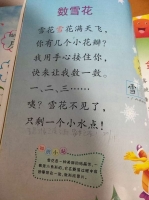 数雪花
雪花雪花满天飞，
你有几个小花瓣？
我用手心接住你，
快来让我数一数。
一、二、三……
咦？雪花不见了，
只剩一个小水点！
雪